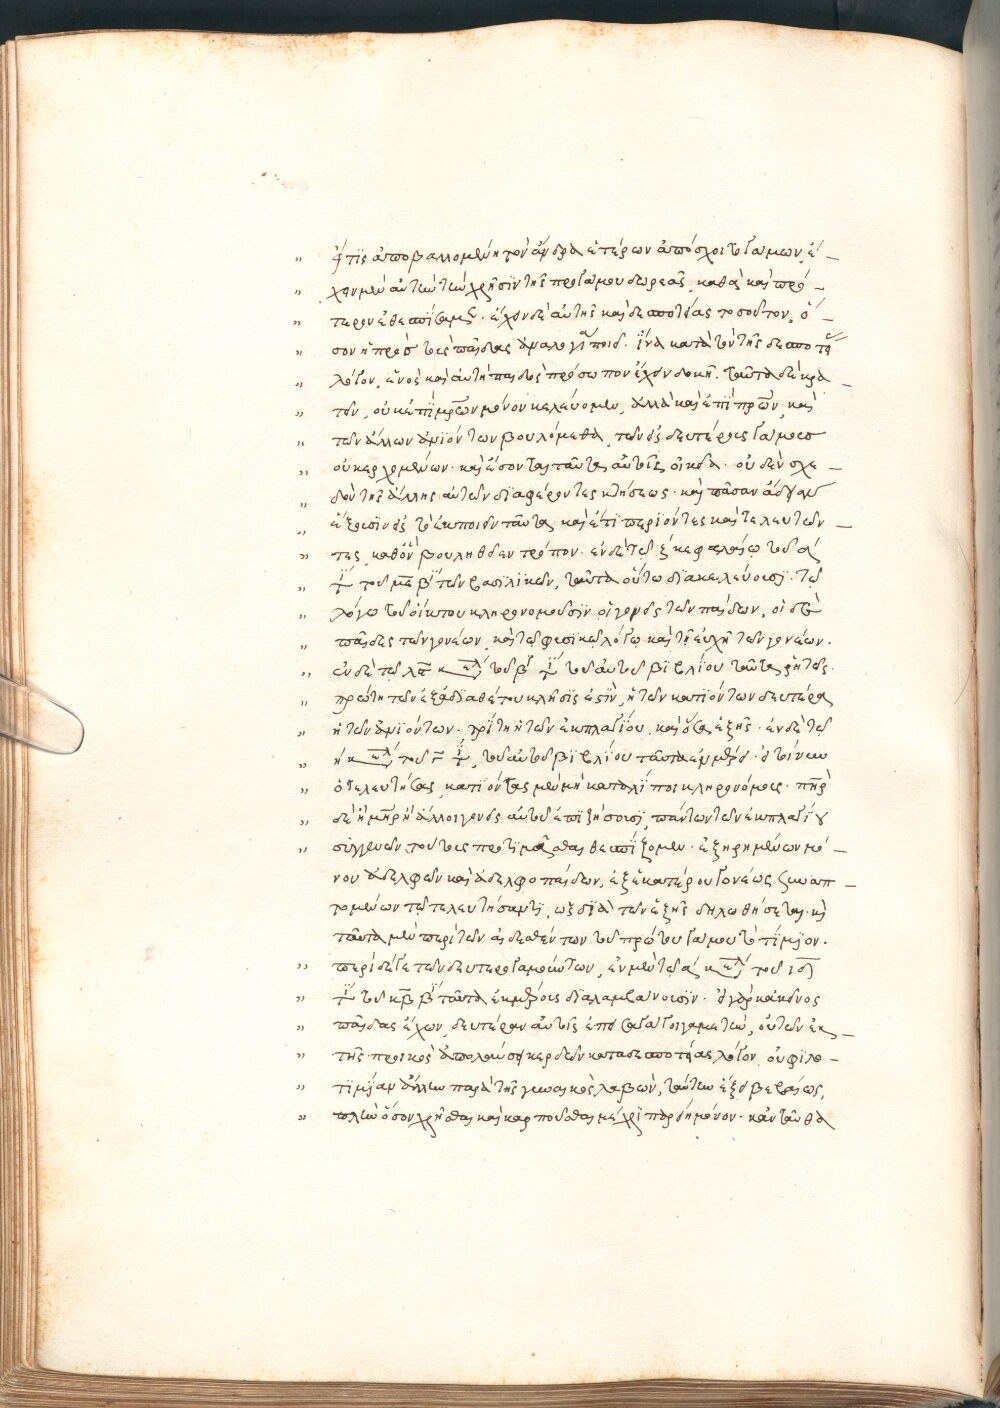 εἴ τις ἀποβαλλομένη τὸν ἄνδρα ἑτέρων ἀπόσχοιτο γάμων, ἔ–
χειν μὲν αὐτὴν τὴν χρῆσιν τῆς πρὸ γάμου δωρεᾶς, καθὰ καὶ πρό–
τερον ἐθεσπίσαμεν. ἔχειν δὲ αὐτῆς καὶ δεσποτείας τοσοῦτον, ὅ–
σον ἡ πρὸς τοὺς παῖδας ἀναλογία ποιεῖ. ἵνα κατὰ τὸν τῆς δεσποτείας
λόγον, ἑνὸς καὶ αὐτὴ παιδὸς πρόσωπον ἔχειν δοκῇ. ταῦτα δὲ κρα–
τεῖν, οὐκ ἐπὶ μητέρων μόνον κελεύομεν, ἀλλὰ καὶ ἐπὶ πατέρων, καὶ
τῶν ἄλλων ἀνιόντων βουλόμεθα, τῶν εἰς δευτέρους γάμους
οὐκ ἐρχομένων. καὶ ἔσονται ταῦτα αὐτοῖς οἰκεῖα. οὐδὲν σχε–
δὸν τῆς ἄλλης αὐτῶν διαφέροντες κτήσεως. καὶ πᾶσαν ἄδειαν
ἕξουσιν εἰς τὸ ἐκποιεῖν ταῦτα, καὶ ἔτι περιόντες καὶ τελευτῶν–
τες, καθ' ὃν βουληθεῖεν τρόπον. ἐν δὲ τῷ ξ κεφαλαίῳ τοῦ α
τί τοῦ με βι τῶν βασιλικῶν, ταῦτα οὕτω διακελεύουσι. τῷ
λόγῳ τοῦ οἴκτου κληρονομοῦσιν οἱ γονεῖς τῶν παίδων, οἱ δὲ
παῖδες τῶν γονέων, καὶ τῷ φυσικῷ λόγῳ καὶ τῇ εὐχῇ τῶν γονέων.
ἐν δὲ τῷ λε κεφαλ τοῦ β τί τοῦ αὐτοῦ βιβλίου ταῦτα ῥητῶς.
πρώτη τῶν ἐξ ἀδιαθέτου κλῆσίς ἐστιν, ἡ τῶν κατιόντων δευτέρα
ἡ τῶν ἀνιόντων. τρίτη ἡ τῶν ἐκ πλαγίου, καὶ ὅσα ἑξῆς. ἐν δὲ τῷ
η κεφαλ τοῦ γ τί, τοῦ αὐτοῦ βιβλίου ταῦτα ἐν μέρει. εἰ τοίνυν
ὁ τελευτήσας, κατιόντας μὲν μὴ καταλίποι κληρονόμους. πατὴρ
δὲ ἢ μήτηρ ἢ ἄλλοι γονεῖς αὐτοῦ ἐπιζήσουσι, πάντων τῶν ἐκ πλαγίου
συγγενῶν τούτους προτιμᾶσθαι θεσπίζομεν. ἐξῃρημένων μό–
νου ἀδελφῶν καὶ ἀδελφοπαίδων, ἐξ ἑκατέρου γονέως συναπ–
τομένων τῷ τελευτήσαντι, ὡς διὰ τῶν ἑξῆς δηλωθήσεται. καὶ
ταῦτα μὲν περὶ τῶν αἰδεσθέντων τοῦ πρώτου γάμου τὸ τίμιον.
περὶ δέ γε τῶν δευτερογαμούντων, ἐν μὲν τῷ α κεφαλ τοῦ ιδ
τί τοῦ κβ βι ταῦτα ἐκ μέρους διαλαμβάνουσιν. εἰ γὰρ κἀκεῖνος
παῖδας ἔχων, δευτέραν αὐτοῖς ἐπεισαγάγοι γαμετὴν, οὔτε τῶν ἐκ
τῆς προικὸς ἀπολαύσει κερδῶν κατὰ δεσποτείας λόγον, οὐ φιλο–
τιμίαν ἄλλην παρὰ τῆς γυναικὸς λαβὼν, ταύτην ἕξει βεβαίως,
πλὴν ὅσον χρῆσθαι καὶ καρποῦσθαι μέχρι περιῇ μόνον. κἀνταῦθα